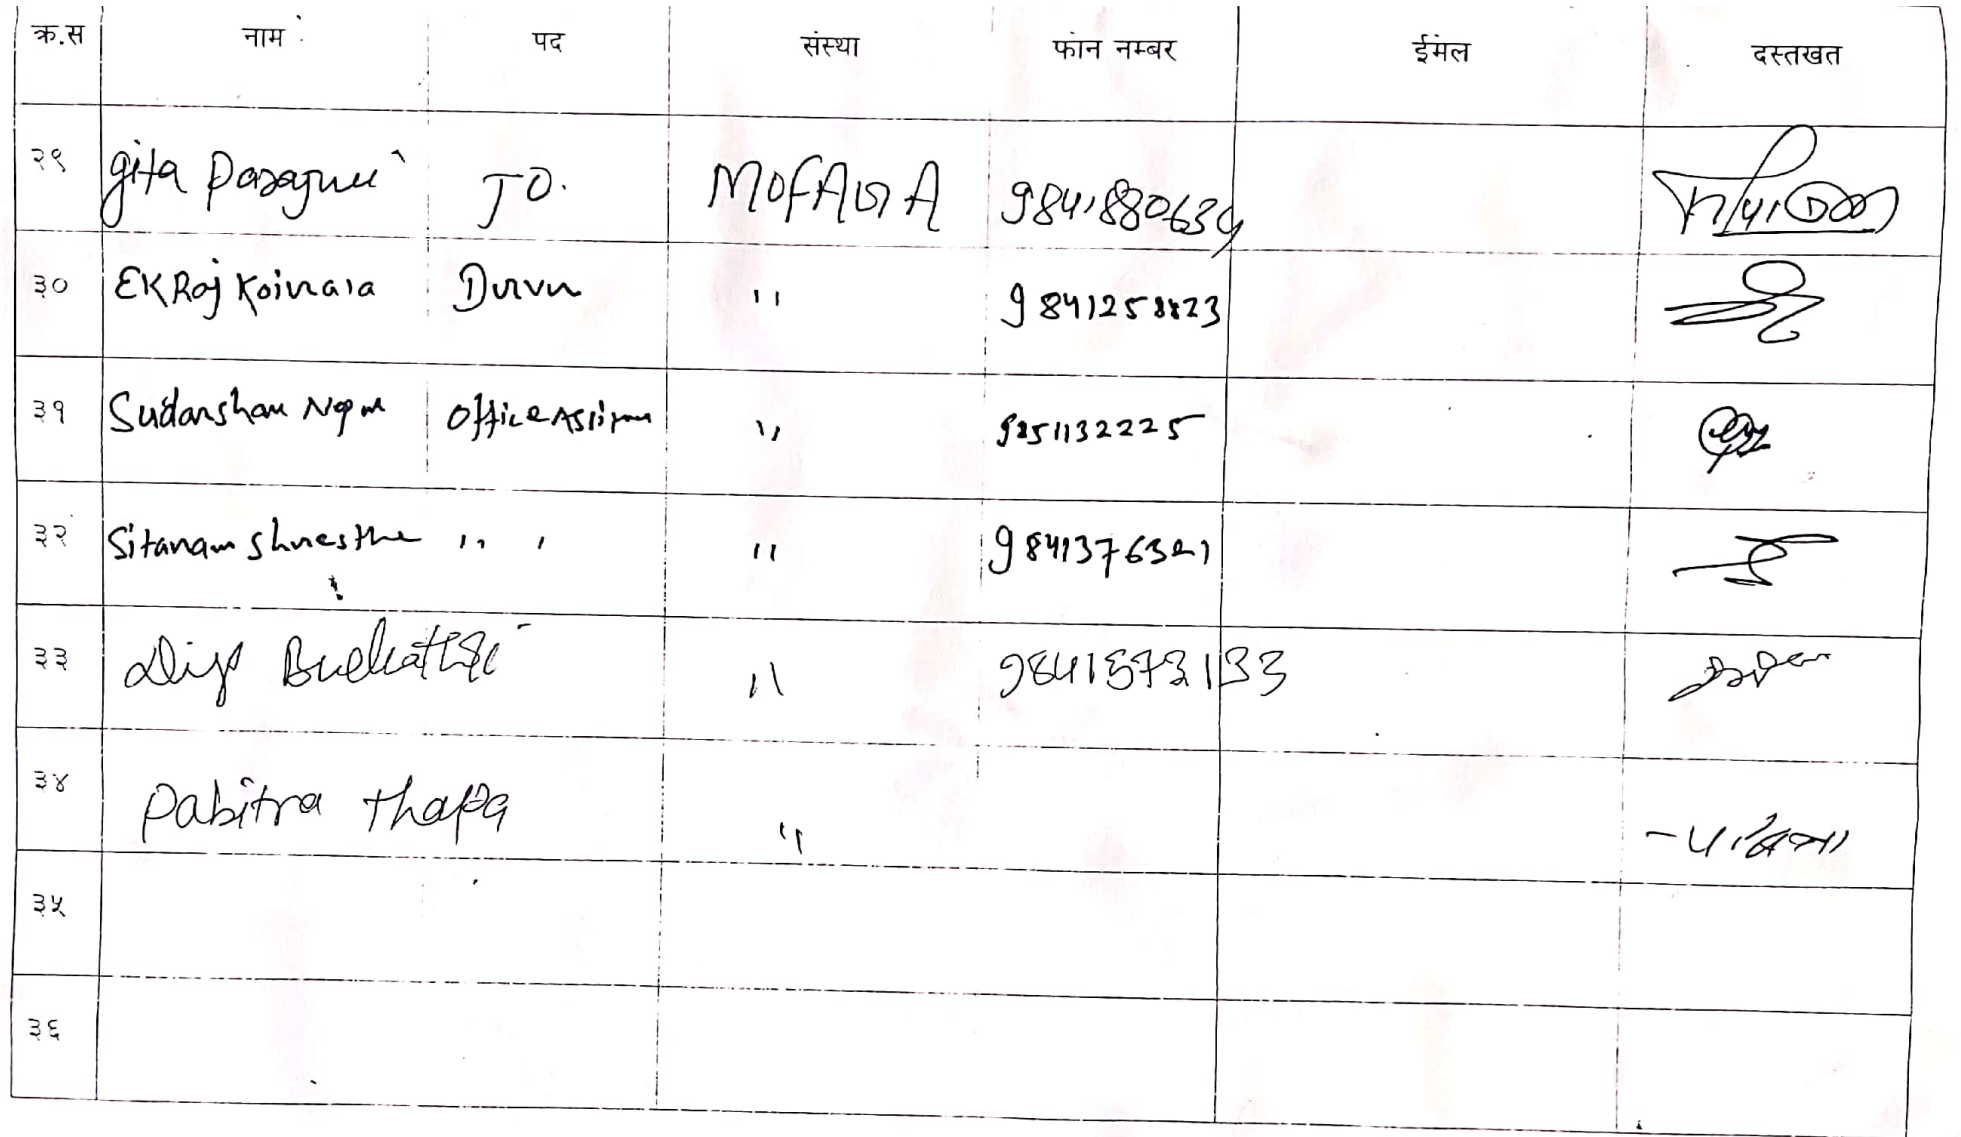 क्र.स नाम पद संस्था फोन नम्बर ईमेल दस्तखत
२९ gita Parajuli JO. MOFAGA
३० Ek Raj Koirala Driver " 9841258823
३१ Sudarshan Office Assistan " 9851132225
३२ Sitaram Shrestha " " " 9841376321
३३ Budhathoki " 9841573133
३४ Pabitra thapa " पवित्रा
३५
३६